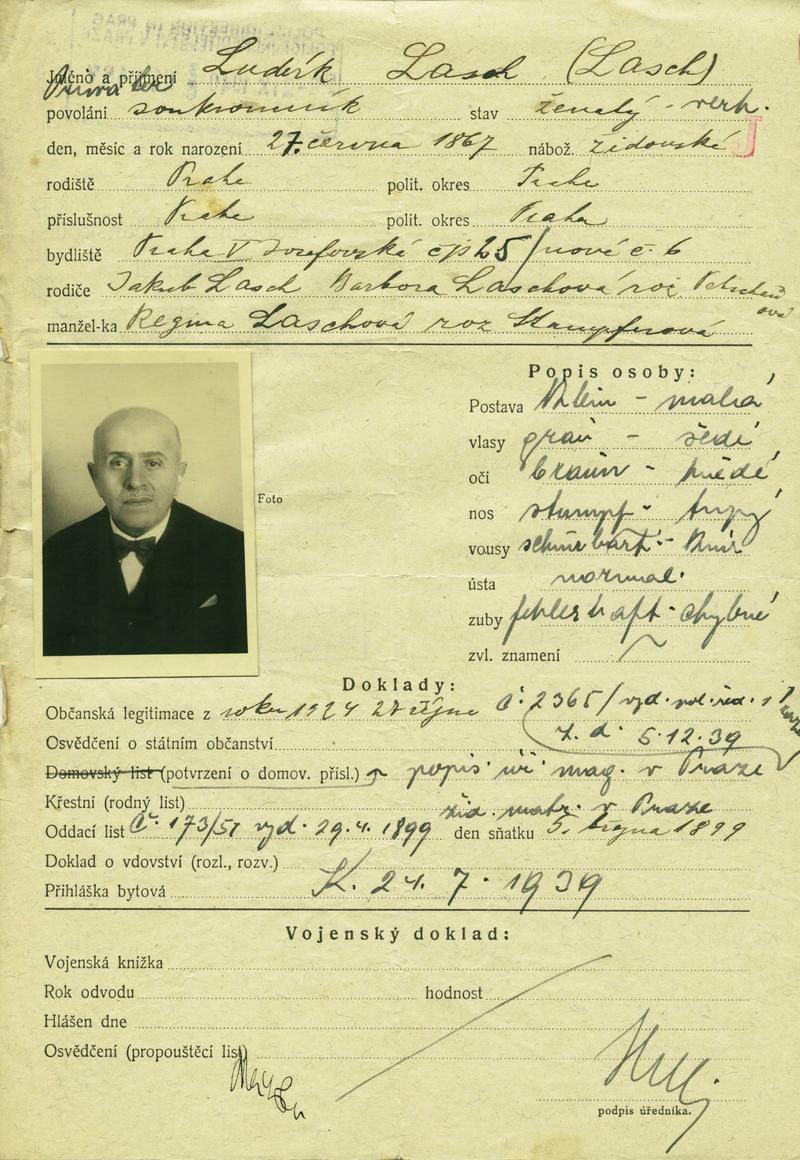 Jméno a příjmení Luděk Lasch (Lasch)
povolání soukromník stav ženatý - verh.
den, měsíc a rok narození 27. června 1867 nábož. židovské J
rodiště Praha polit. okres Praha
příslušnost Praha polit. okres Praha
bydliště Praha V Josefovská čp 25/nové č. 6
rodiče Jakub Lasch Barbora Laschová roz.
manžel-ka Regina Laschová roz Stampferová
Popis osoby:
Postava klein - malá
vlasy grau - šedé
oči braun - hnědé
Foto
nos stumpf - tupý
vousy - knír
ústa normal.
zuby fehlerhaft - chybné
zvl. znamení
Doklady:
Občanská legitimace z roku 1924 27 října č. 2365/ vyd. pol. řed.
z. d. 5.12.39
Osvědčení o státním občanství
Domovský list (potvrzení o domov. přísl.) popis. úř. mag. v Praze
Křestní (rodný list) žid. matr. v Praze
Oddací list č. 173/51 vyd. 29.4.1899 den sňatku 5. 1899
Doklad o vdovství (rozl., rozv.)
Přihláška bytová K. 24. 7. 1939
Vojenský doklad:
Vojenská knížka
Rok odvodu hodnost
Hlášen dne
Osvědčení (propouštěcí list)
podpis úředníka.